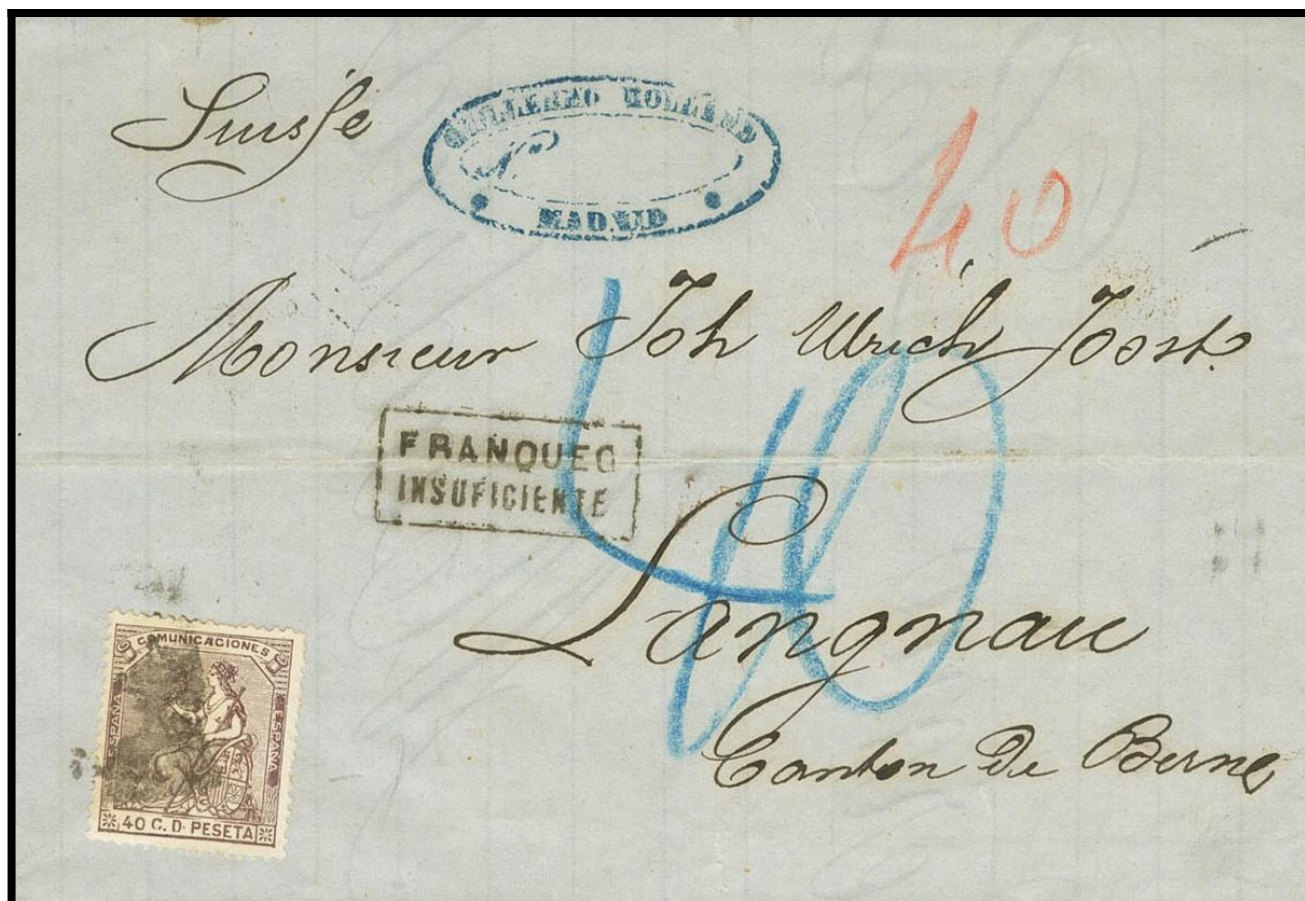 Suisse
GUILLERMO
MADRID
40
Monsieur Joh Ulrich Joost.
40
FRANQUEO
INSUFICIENTE
Langnau
Canton De Berne
COMUNICACIONES
ESPAÑA
ESPAÑA
40 C. D. PESETA